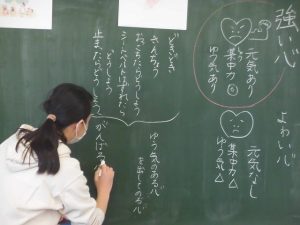 強い心
元気あり
集中力◎
ゆう気あり
よわい心
元気なし
集中力△
ゆう気△
どきどき
きんちょう
おこちたらどうしよう
シートベルトはずれたら
どうしよう
止まったらどうしよう
がんばる
ゆう気のある心
を出してのる心